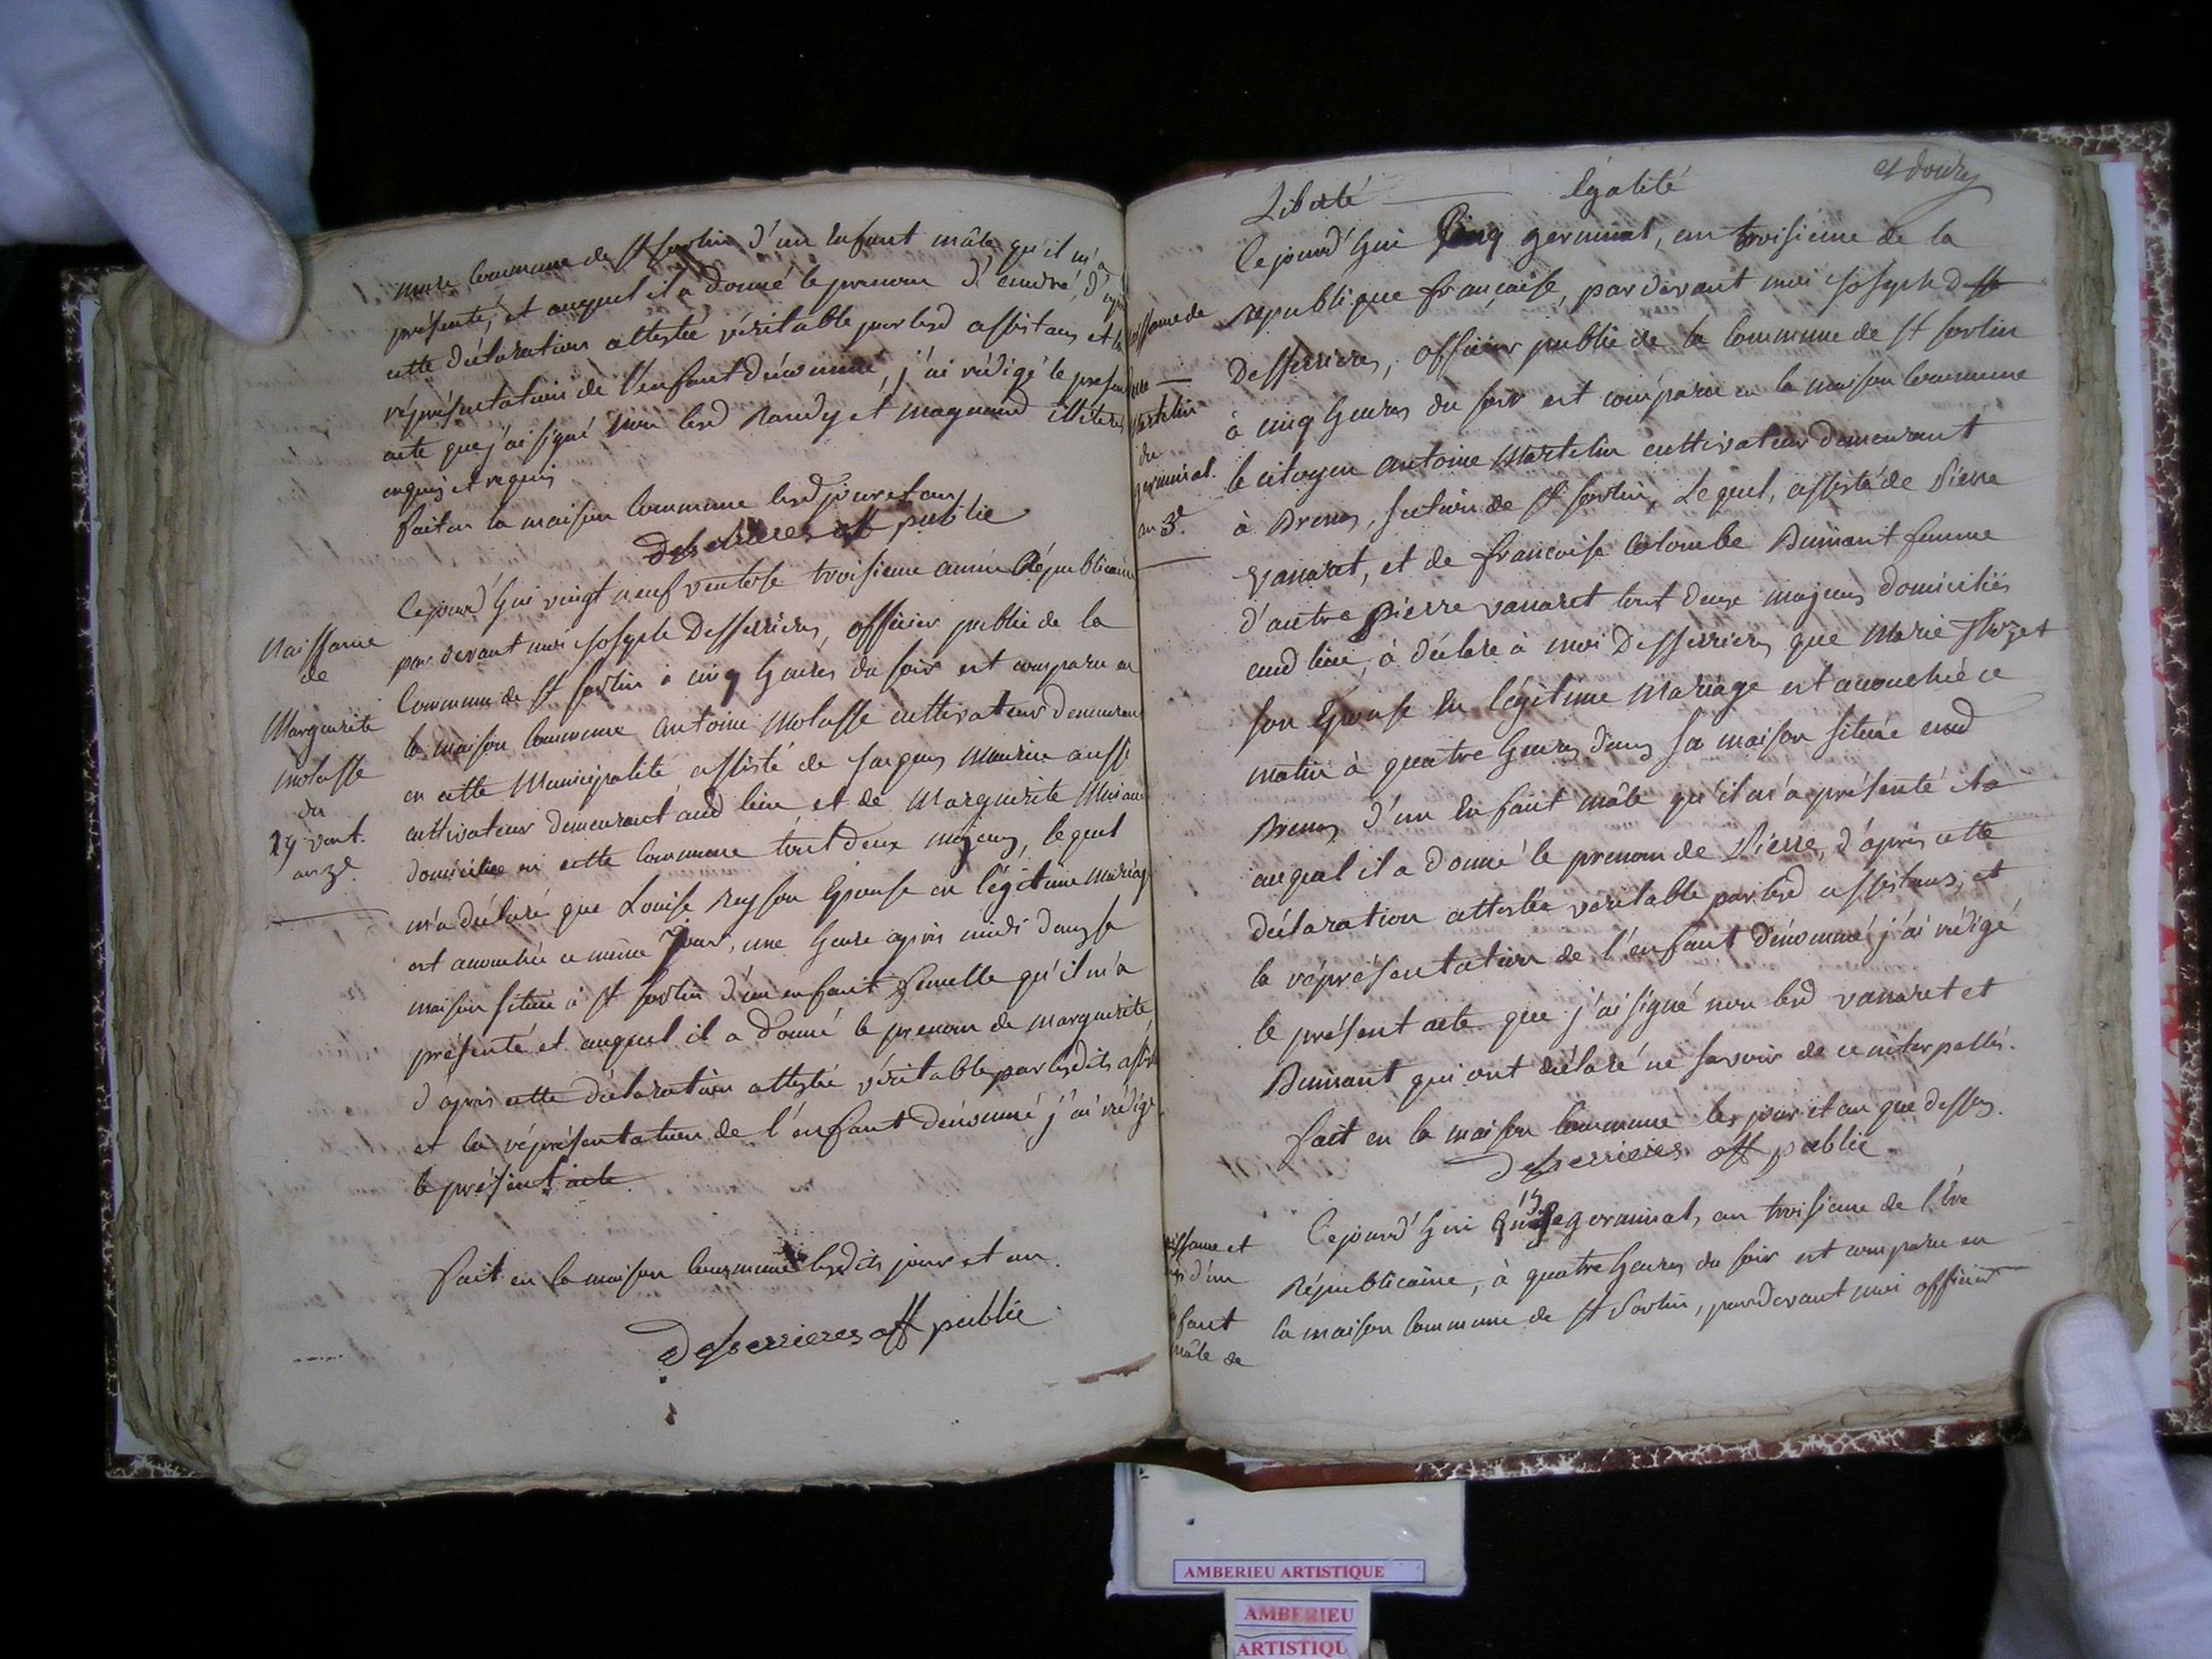 même commune de St Sorlin d'un Enfant mâle qu'il m'a
présenté, et auquel il a donné le prenom d'andré, d'après
cette déclaration attestée véritable par lesd assistans et la
réprésentation de l'enfant dénommé, j'ai rédigé le présent
acte que j'ai signé non lesd Randy et magnand illiteres
enquis et requis
fait en la maison Commune lesd jour et an
Desserrieres off public
Naissance
de
Marguerite
molasse
du
29 vent.
an 3e
Cejourd'hui vingt neuf ventose troisieme année Républicaine
par devant moi Joseph Desserrieres, officier public de la
Commune de St Sorlin à cinq heures du soir est comparu en
la maison commune Antoine Molasse cultivateur demeurant
en cette Municipalité assisté de Jacques Maurin aussi
cultivateur demeurant aud lieu, et de Marguerite
domiciliée en cette commune tout deux majeurs, lequel
m'a déclaré que Louise Rey son Epouse en légitime Mariage
est accouchée ce même jour, une heure après midi dans sa
maison située à St Sorlin d'un enfant femelle qu'il m'a
présenté et auquel il a donné le prenom de marguerite
d'après cette déclaration attestée véritable par lesdits assist
et la réprésentation de l'enfant dénommé j'ai rédigé
le présent acte
fait en la maison commune lesdits jour et an.
Desserrieres off public
Liberté Egalité
issance de
martelin
du
germinal.
an 3e
Cejourd'hui Cinq germinal, an troisieme de la
République française, par devant moi Joseph Dess
Desserrieres, officier public de la Commune de St Sorlin
à cinq heures du soir est comparu en la maison Commune
le citoyen Antoine Martelin cultivateur demeurant
à Brenos, section de St Sorlin, Lequel, assisté de Pierre
Vanaret, et de françoise Colombe Dumant femme
d'autre Pierre vanaret tout deux majeurs domiciliés
aud lieu, à déclaré à moi Desserrieres que Marie
son Epouse En légitime Mariage est accouchée ce
matin à quatre heures dans sa maison située aud
Brenos d'un Enfant mâle qu'il m'a présenté et a
auquel il a donné le prenom de Pierre, d'après cette
déclaration attestée veritable par lesd assistans, et
la réprésentation de l'enfant dénommé j'ai rédigé
le présent acte que j'ai signé non lesd vanaret et
Dumant qui ont déclaré ne savoir de ce interpellés.
fait en la maison Commune les jour et an que dessus.
Desserrieres off public
issance et
d'un
fant
mâle de
Cejourd'hui 15 germinal, an troisieme de l'Ere
Républicaine, à quatre heures du soir est comparu en
la maison Commune de St Sorlin, pardevant moi officier
AMBERIEU ARTISTIQUE
AMBERIEU
ARTISTIQU